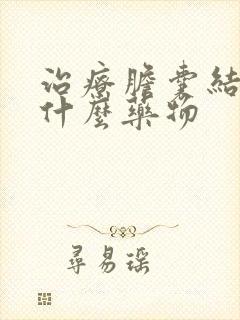 治療膽囊結
什麼藥物
尋易瑶